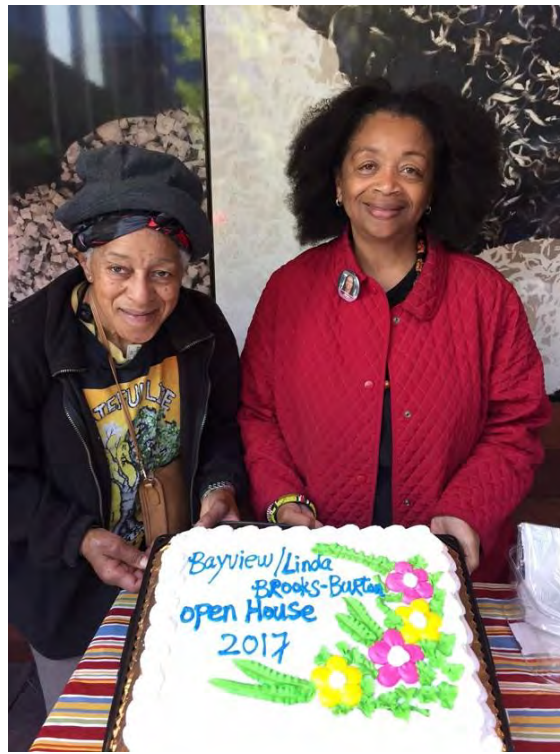 Bayview/Linda
Brooks-Burton
open House
2017